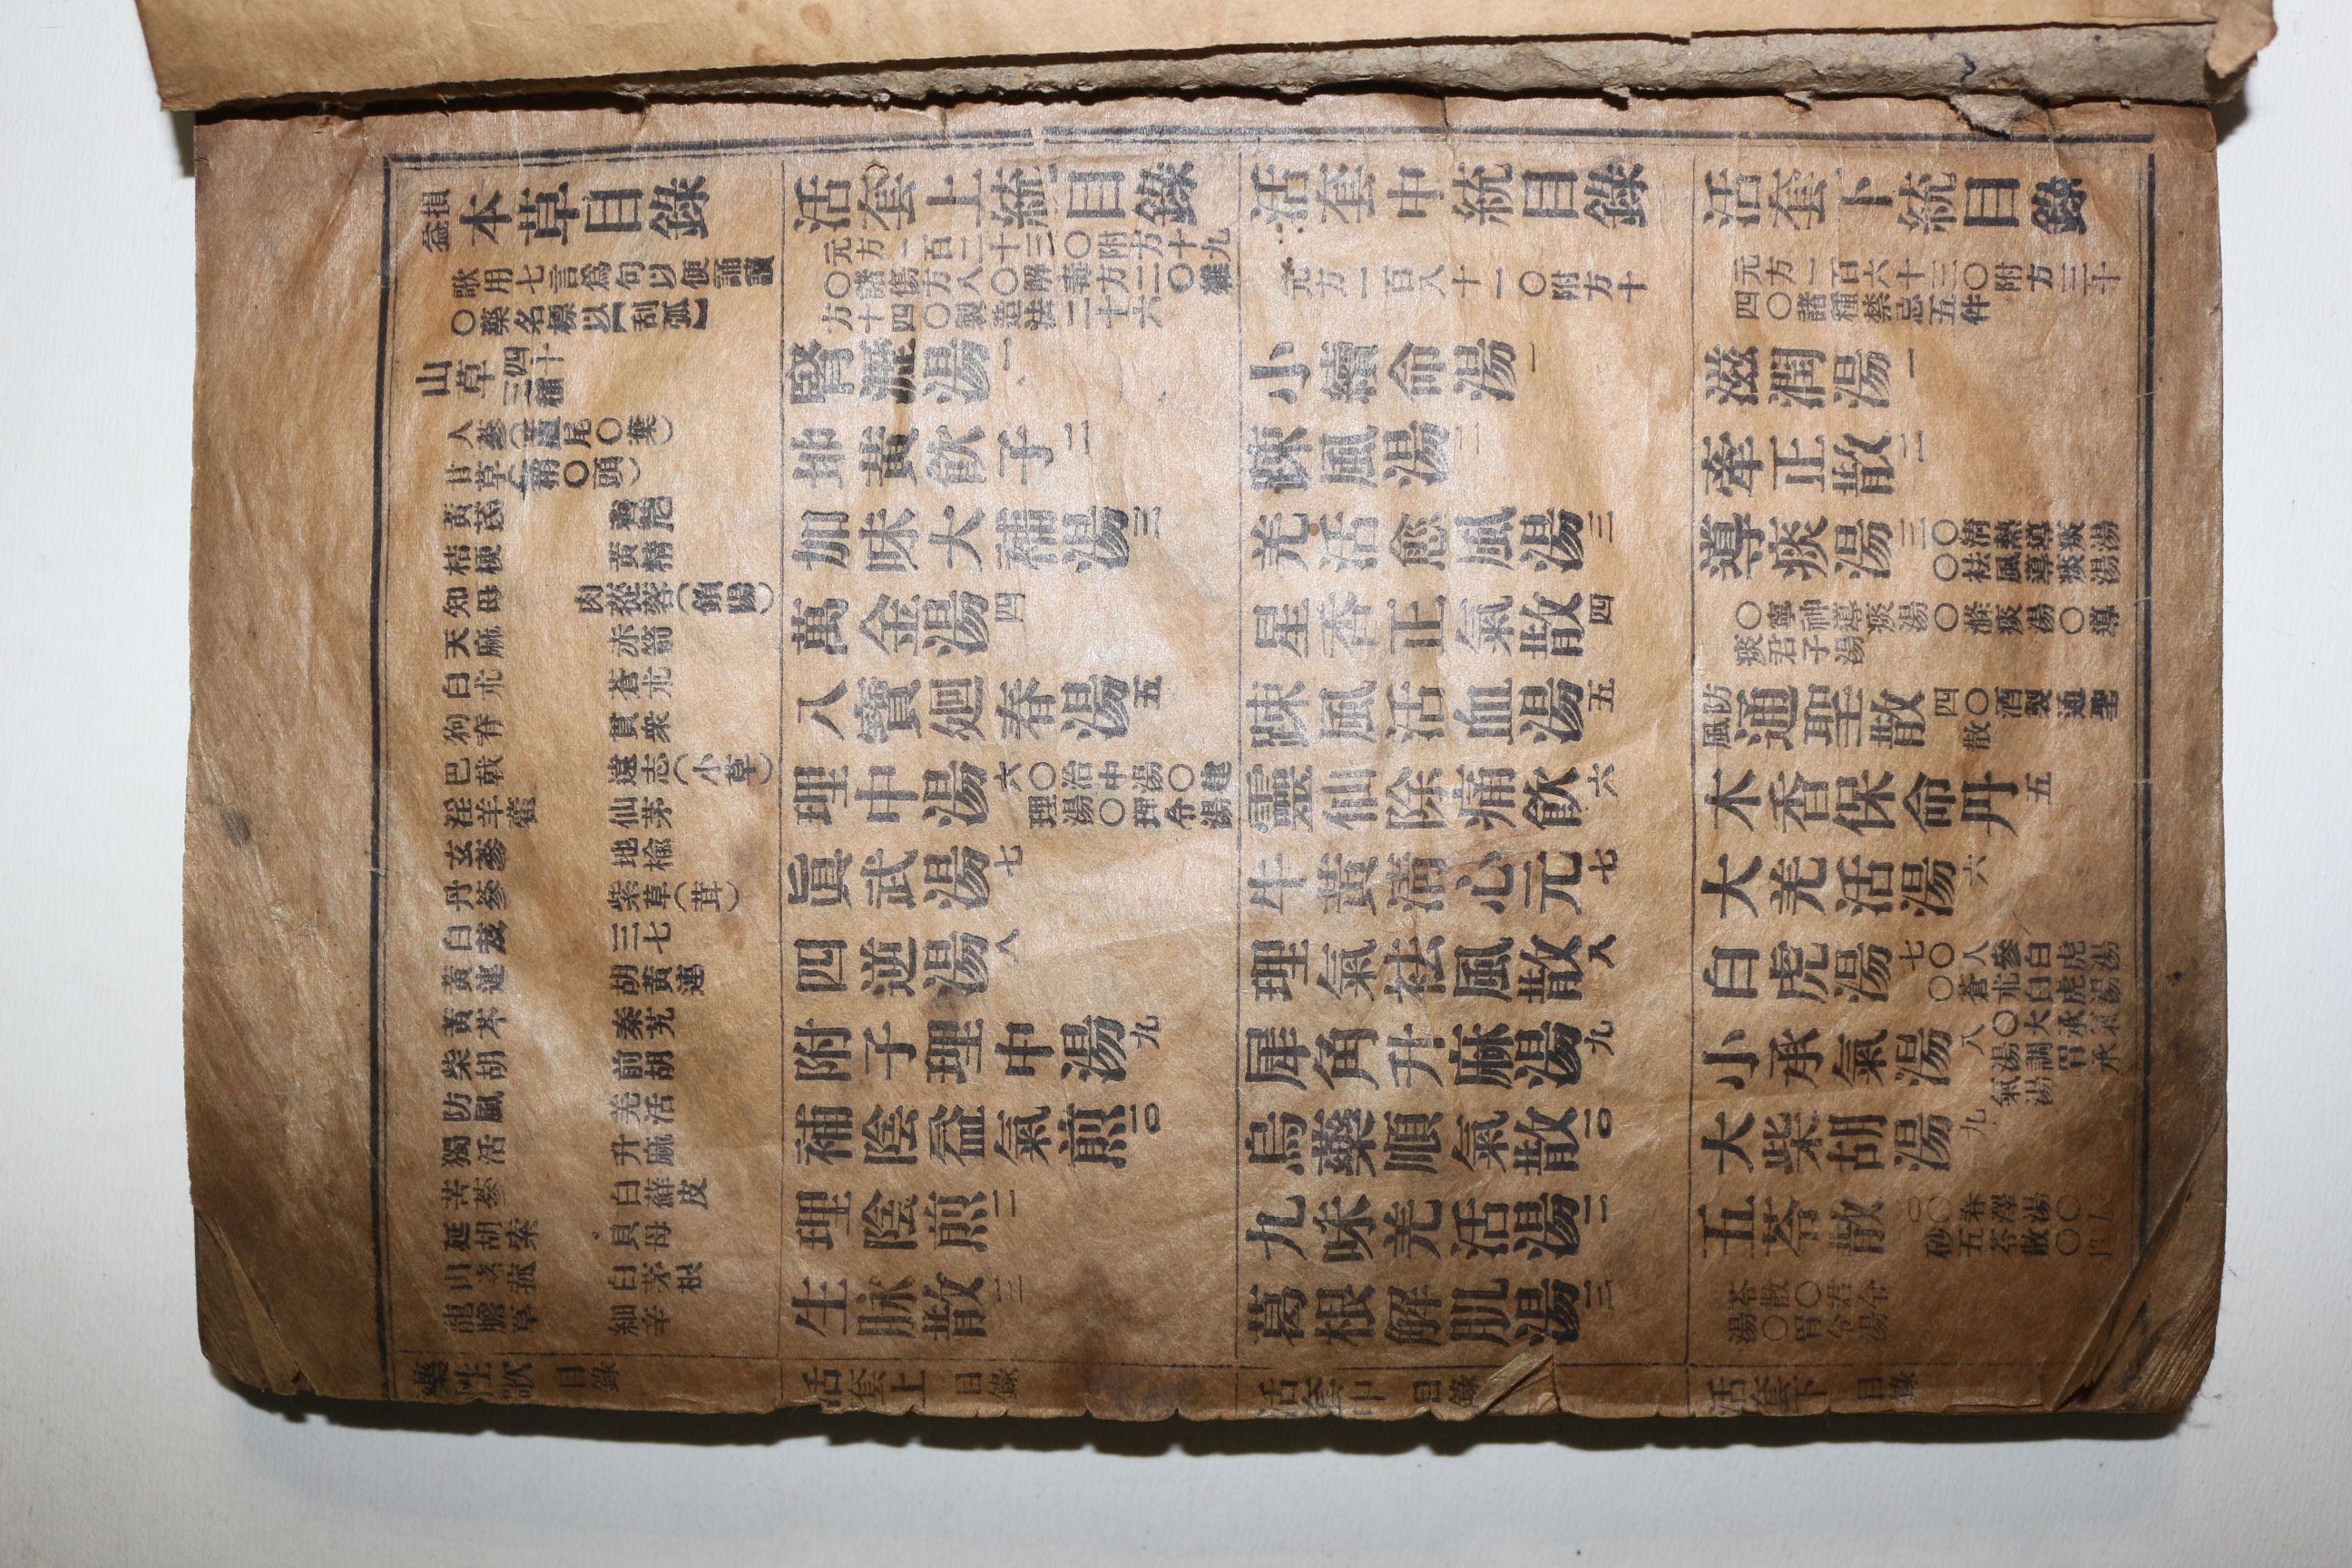 損益本草目錄
歌用七言爲句以便誦讀
○藥名標以【刮弧】
山草四十三種
人蔘(蘆尾○葉)
甘草(稍○頭)
黃芪 薺苨
桔梗 黃精
知母 肉蓯蓉(鎖陽)
天麻 赤箭
白朮 蒼朮
狗脊 貫衆
巴戟 遠志(小草)
淫羊藿 仙茅
玄蔘 地楡
丹蔘 紫草(茸)
白芨 三七
黃連 胡黃連
黃芩 秦艽
柴胡 前胡
防風 羌活
獨活 升麻
苦蔘 白蘚皮
延胡索 貝母
山茨菰 白茅根
龍膽草 細辛
藥性歌 目錄
活套上統目錄
元方一百二十三○附方十九
○諸傷方八○解毒方二○雜
方十四○製造法二十六
腎瀝湯一
地黃飮子二
加味大補湯三
萬金湯四
八寶廻春湯五
理中湯六○治中湯○建
理湯○理令湯
眞武湯七
四逆湯八
附子理中湯九
補陰益氣煎一○
理陰煎一一
生脉散一二
活套上 目錄
活套中統目錄
元方一百八十一○附方十
小續命湯一
疎風湯二
羌活愈風湯三
星香正氣散四
疎風活血湯五
靈仙除痛飮六
牛黃淸心元七
理氣祛風散八
犀角升麻湯九
烏藥順氣散一○
九味羌活湯一一
葛根解肌湯一二
活套中 目錄
活套下統目錄
元方一百六十三○附方三十
四○諸種禁忌五件
滋潤湯一
牽正散二
導痰湯三○淸熱導痰湯
○祛風導痰湯
○寧神導痰湯○滌痰湯○導
痰君子湯
防風通聖散四○酒製通聖
散
木香保命丹五
大羌活湯六
白虎湯七○人參白虎湯
○蒼朮白虎湯
小承氣湯八○大承
氣湯○調胃承氣
湯
大柴胡湯九
五苓散一○○春澤湯○
砂五苓散○
苓散○君令
湯○胃令湯
活套下 目錄